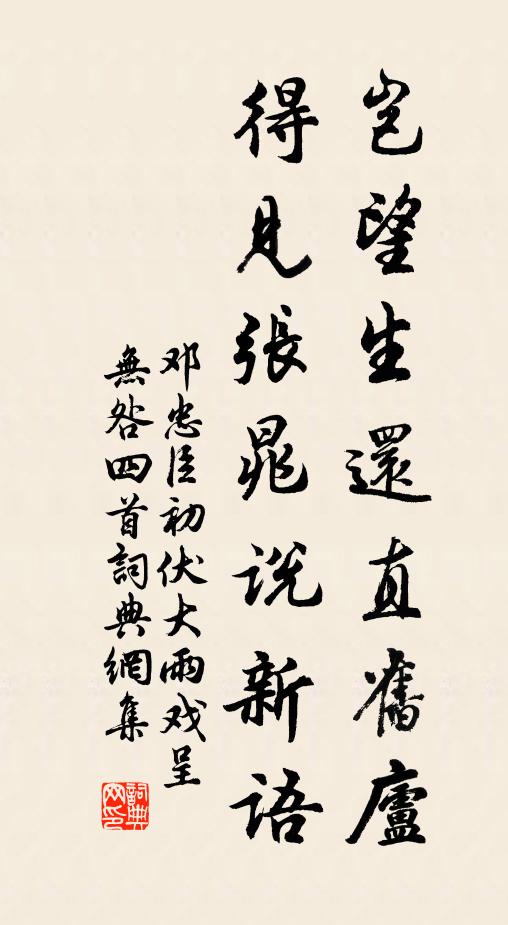 岂望生還直舊廬
得見張晁说新语
邓忠臣初伏大雨戏呈
無咎四首詞典網集
詞典网印